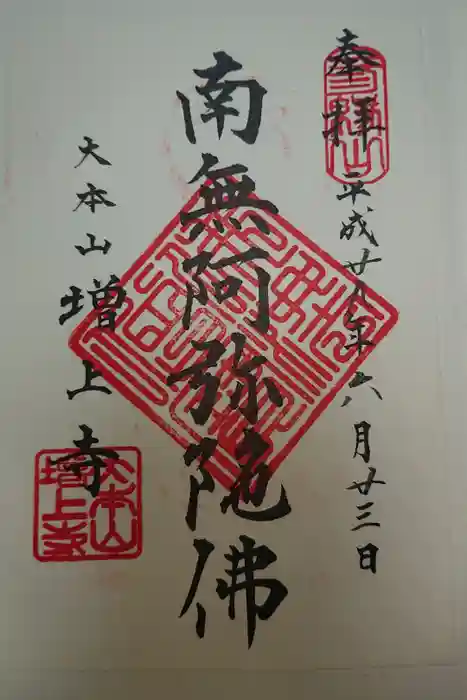 奉拝
平成廿八年六月廿三日
南無阿弥陀佛
大本山 増上寺
大本山
増上寺